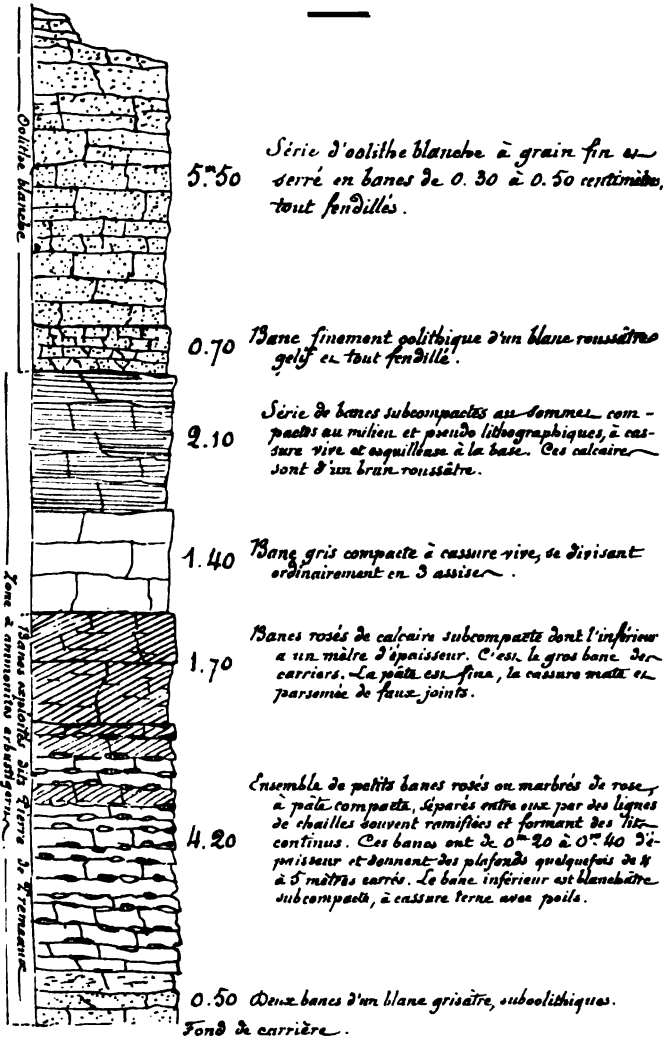 Oolithe blanche
5.m50
Série d'oolithe blanche à grain fin et
serré en bancs de 0.30 à 0.50 centimètres,
tout fendillés.
0.70
Banc finement oolithique d'un blanc roussâtre
gelif et tout fendillé.
2.10
Série de bancs subcompactes au sommet com-
pactes au milieu et pseudo lithographiques, à cas-
sure vive et esquilleuse à la base. Ces calcaires
sont d'un brun roussâtre.
1.40
Banc gris compacte à cassure vive, se divisant
ordinairement en 3 assises.
Zone à ammonites arbustigerus.
Bancs exploités dits Pierre de Premeaux
1.70
Bancs rosés de calcaire subcompacte dont l'inférieur
a un mètre d'épaisseur. C'est le gros banc des
carriers. La pâte est fine, la cassure mate et
parsemée de faux joints.
4.20
Ensemble de petits bancs rosés ou marbrés de rose,
à pâte compacte, séparés entre eux par des lignes
de chailles souvent ramifiées et formant des lits
continus. Ces bancs ont de 0m20 à 0m40 d'é-
paisseur et donnent des plafonds quelquefois de 4
à 5 mètres carrés. Le banc inférieur est blanchâtre
subcompacte, à cassure terne avec poils.
0.50
Deux bancs d'un blanc grisâtre, suboolithiques.
Fond de carrière.